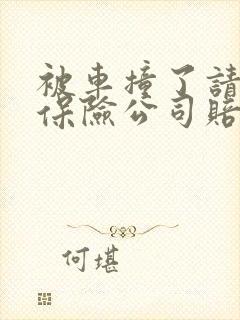 被車撞了請
保險公司賠
何堪